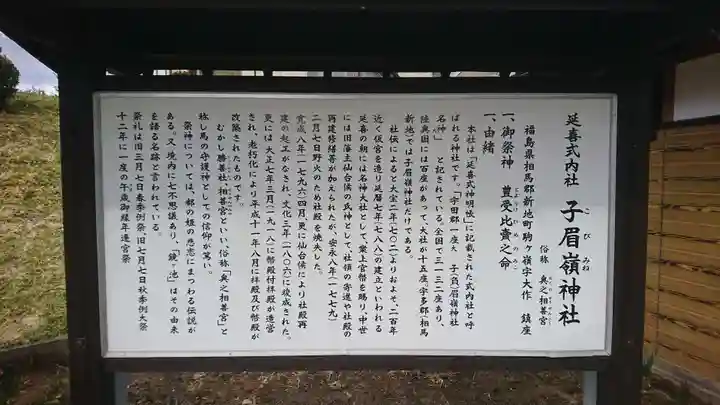 延喜式内社 子眉嶺神社
こびみね
俗称 奥之相善宮
福島県相馬郡新地町駒ヶ嶺字大作 鎮座
一、御祭神 豊受比賣之命
一、由緒
本社は「延喜式神明帳」に記載された式内社と呼
ばれる神社です。「宇田郡一座大 子(負)眉嶺神社
名神」 と記されている。全国で三一三二座あり、
陸奥国には百座があって、大社が十五座。宇多郡(相馬
新地)では子眉嶺神社だけである。
社伝によると大宝二年(七〇二)よりおよそ、二百年
近く仮宮を造り延暦七年(七八八)の建立といわれる
延喜の朝には名神大社として、業上官幣を賜り、中世
には旧藩主仙台候の氏神として、社領の寄進や社殿の
再建修繕等が加えられたが、安永八年(一七七九)
二月七日野火のため社殿を焼失した。
寛成八年(一七九六)四月、更に仙台候により社殿再
建の起工がなされ、文化三年(一八〇六)に竣成された。
更には大正七年三月(一九一八)に幣殿付拝殿が造営
され、老朽化により平成十一年八月に拝殿及び幣殿が
改築されたものです。
むかし勝善社・相善宮といい、俗称「奥之相善宮」と
称し馬の守護神としての信仰が篤い。
祭神については、都の姫の悲恋にまつわる伝説が
ある。又境内に七不思議あり、「鏡ヶ池」はその由来
を語る名跡と言われている。
祭礼は旧三月七日春季例祭、旧七月七日秋季例大祭
十二年に一度の午歳御縁年遷宮祭